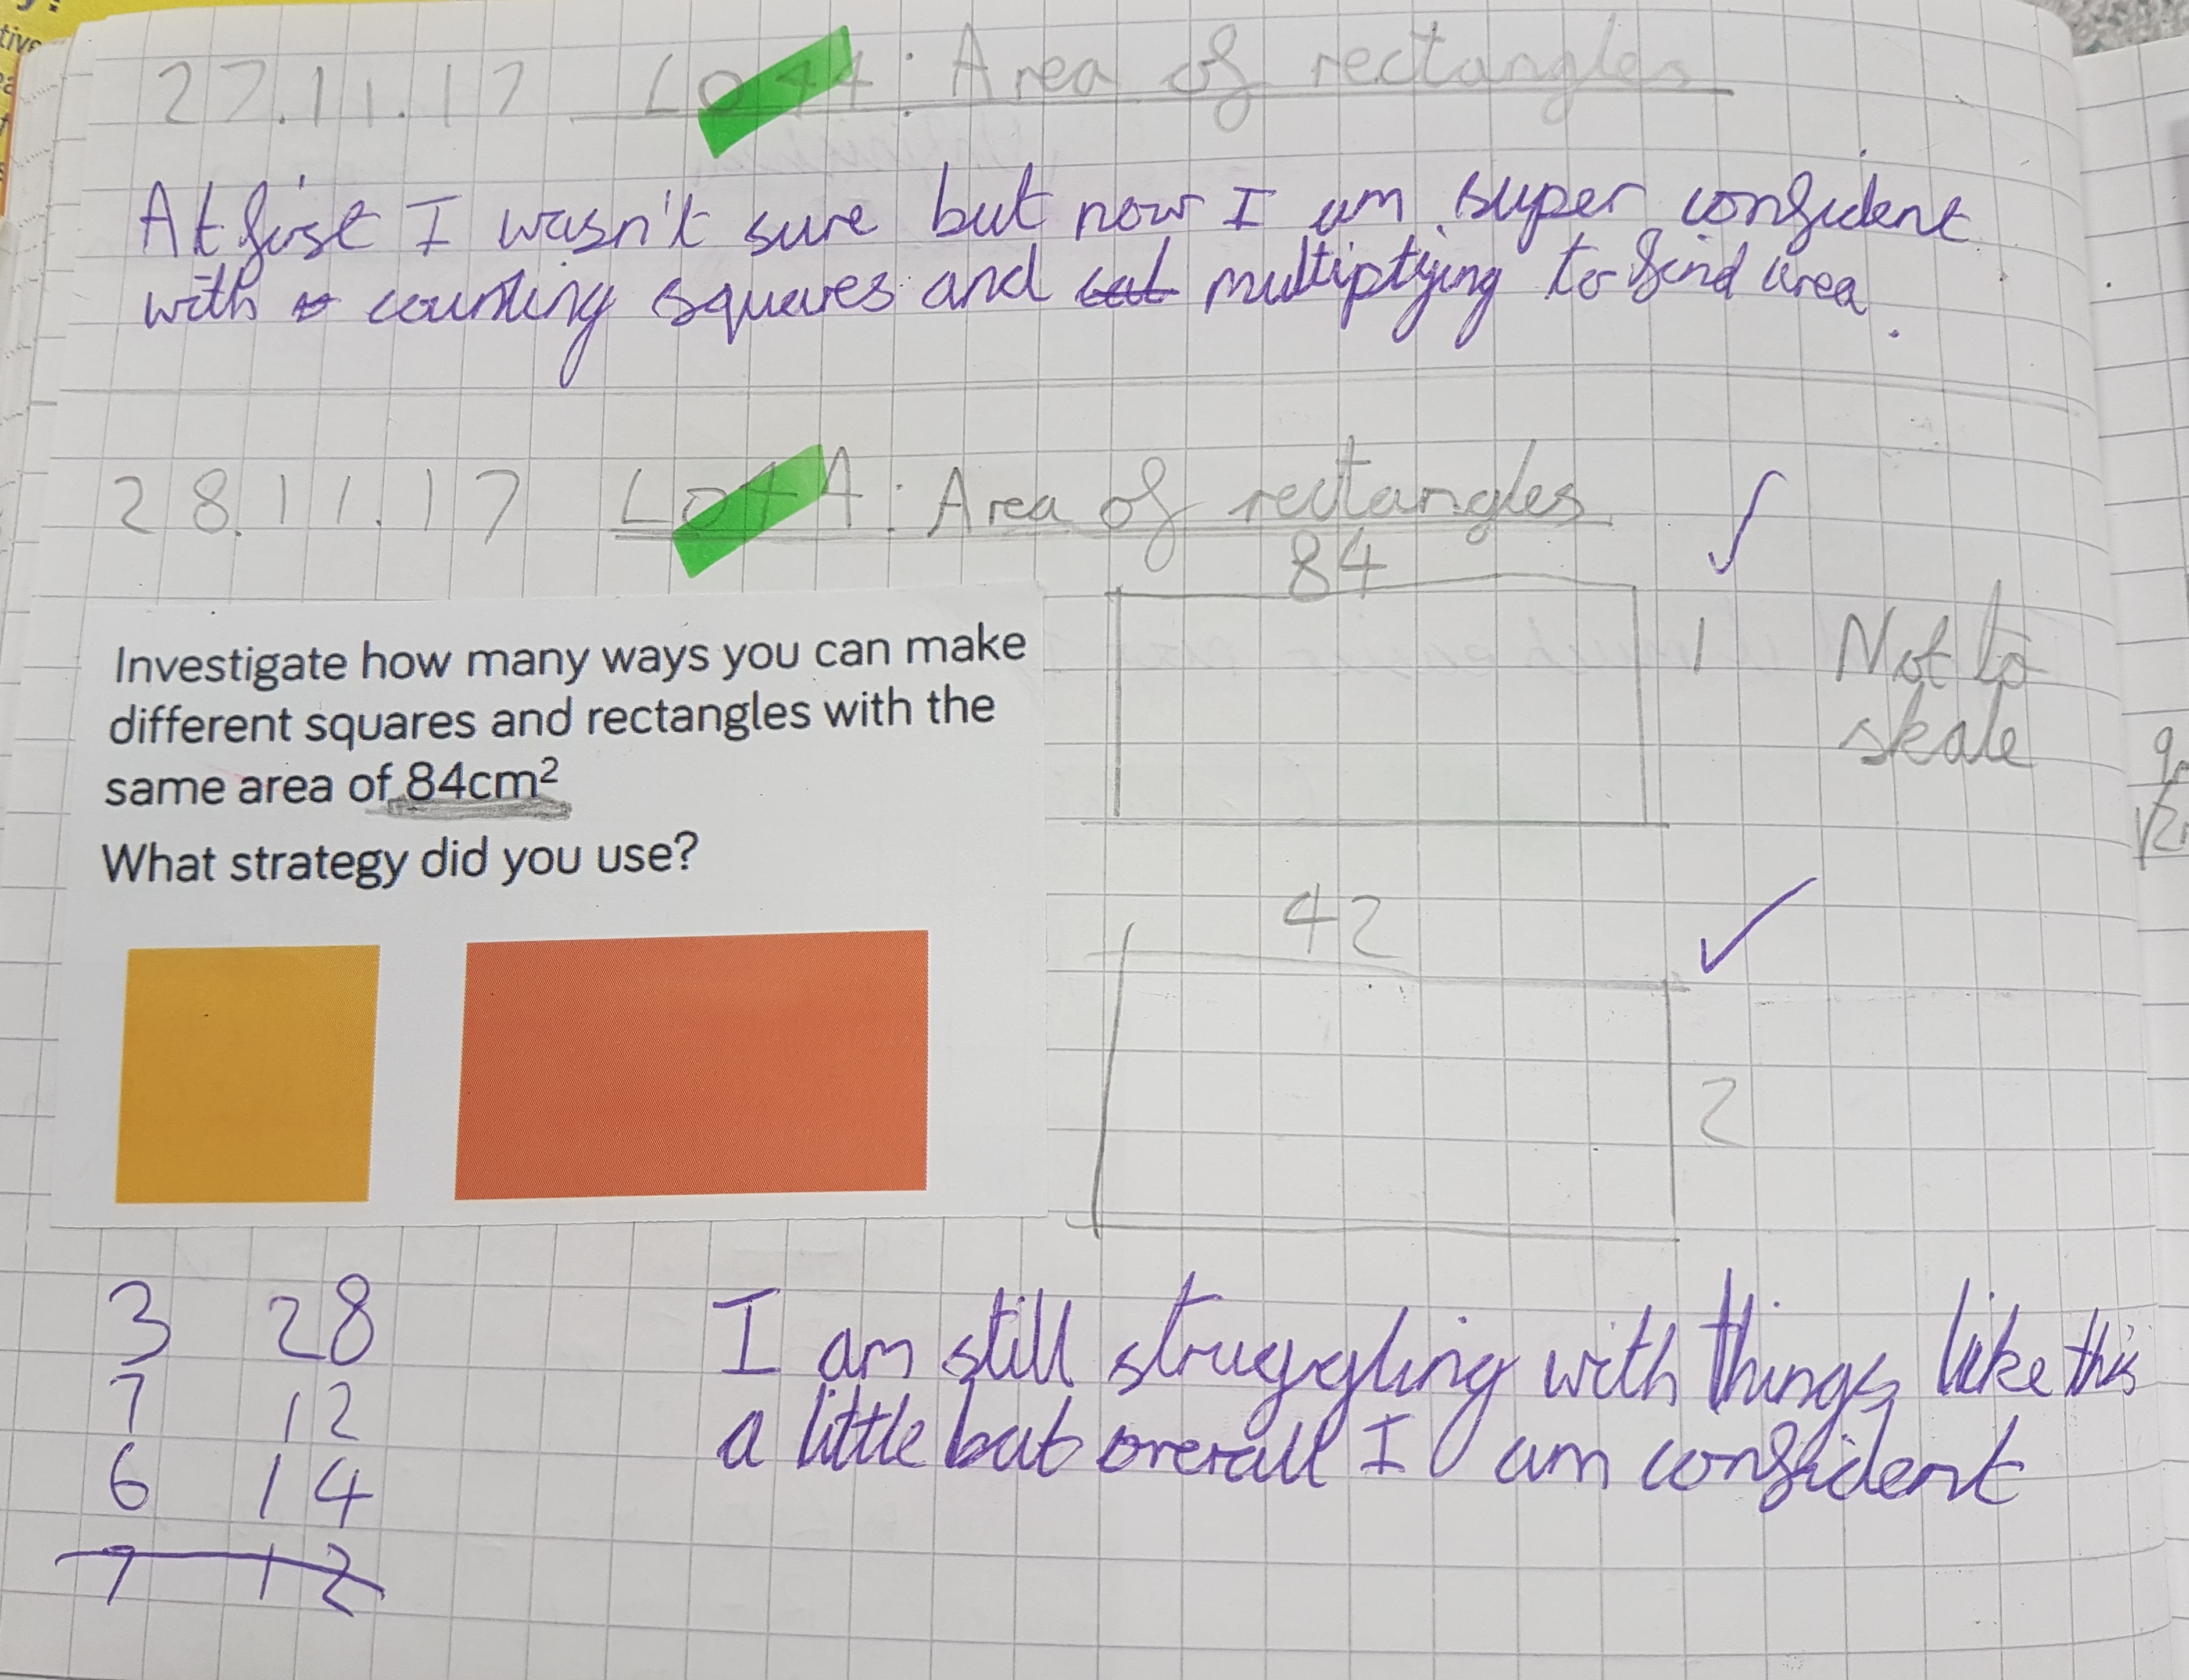 27.11.17 LO44: Area of rectangles
At first I wasn't sure but now I am super confident
with counting squares and multiplying to find area.
28.11.17 LO44: Area of rectangles
84
Investigate how many ways you can make
different squares and rectangles with the
same area of 84cm²
What strategy did you use?
1 Not to
skale
42
2
3 28
7 12
6 14
7 12
I am still struggling with things like this
a little but overall I am confident